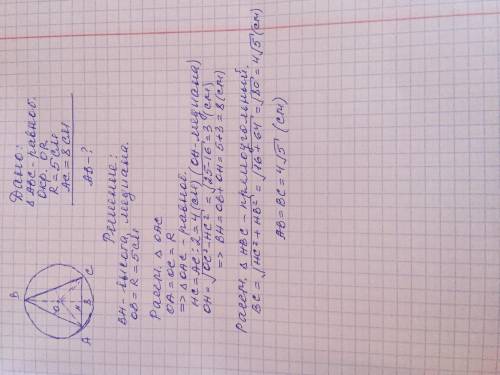 Дано:
Δ ABC - равноб.
Окр. OR
R = 5см
AC = 8 см
AB - ?
B
O
H
8
A
C
Решение:
BH - высота, медиана.
OB = R = 5см
Рассм. Δ OAC
OA = OC = R
=> Δ OAC - равноб.
HC = AC : 2 = 4 (см) (OH - медиана)
OH = √OC² - HC² = √25 - 16 = 3 (см)
=> BH = OB + OH = 5 + 3 = 8 (см)
Рассм. Δ HBC - прямоугольный.
BC = √HC² + HB² = √16 + 64 = √80 = 4√5 (см)
AB = BC = 4√5 (см)